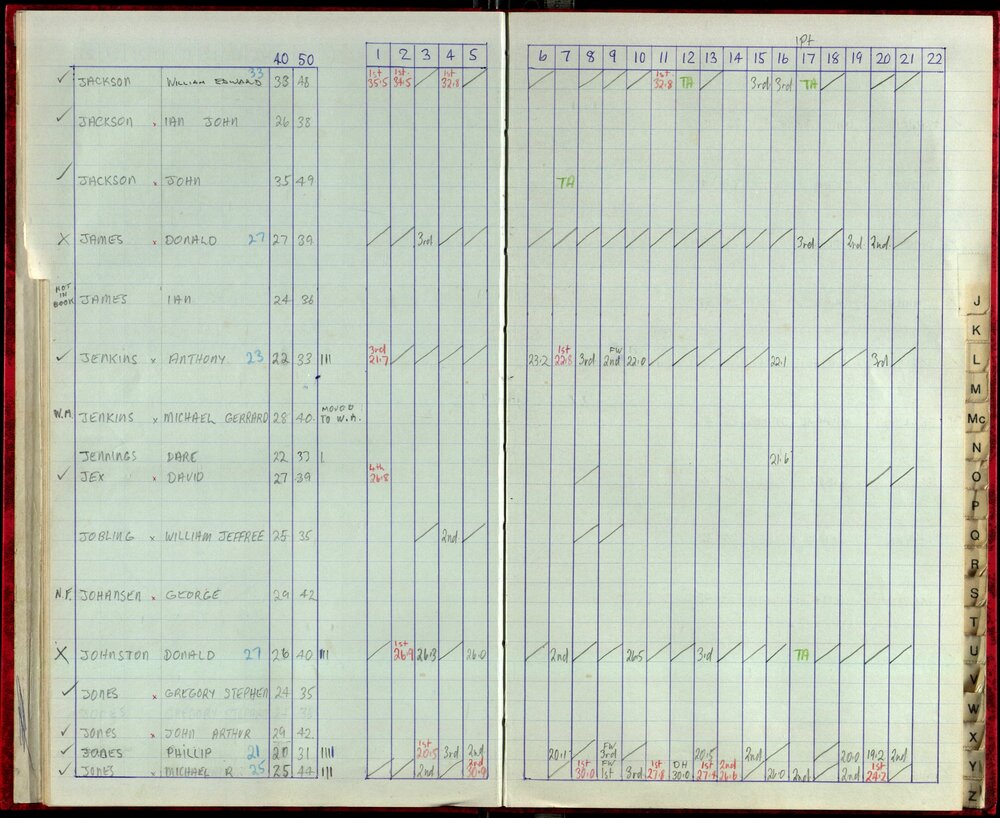 1Pt
40 50 1 2 3 4 5 6 7 8 9 10 11 12 13 14 15 16 17 18 19 20 21 22
✓ JACKSON WILLIAM EDWARD 33 33 48 1st 35.5 1st 34.5 / 1st 32.8 / / / / / 1st 32.8 TA / 3rd 3rd TA / / /
✓ JACKSON x IAN JOHN 26 38
✓ JACKSON x JOHN 35 49 TA
X JAMES x DONALD 27 27 39 / / 3rd / / / / / / / / / / / / / 3rd / 2nd 2nd /
NOT IN BOOK JAMES IAN 24 36
✓ JENKINS x ANTHONY 23 22 33 III 3rd 21.7 / / / / 23.2 1st 22.8 3rd FW 2nd 22.0 / / / / / 22.1 / / 3rd /
W.A. JENKINS x MICHAEL GERRARD 28 40 MOVED TO W.A.
JENNINGS DARE 22 33 I 21.6
✓ JEX x DAVID 27 39 4th 26.8 / / /
JOBLING x WILLIAM JEFFREE 25 35 / 2nd / / /
N.F. JOHANSEN x GEORGE 29 42
X JOHNSTON DONALD 27 26 40 III / 1st 26.9 26.3 / 26.0 / 2nd / / 26.5 / / 3rd / / / TA / / / /
✓ JONES x GREGORY STEPHEN 24 35
JONES GREGORY STEPHEN
✓ JONES x JOHN ARTHUR 29 42
✓ JONES PHILLIP 21 20 31 IIII 1st 20.5 3rd 2nd 20.1 FW 3rd 20.5 2nd 20.0 19.2 2nd
✓ JONES x MICHAEL R. 25 25 44 III / / 2nd / 2nd 30.9 1st 30.0 FW 1st 3rd 1st 27.8 DH 30.0 1st 27.4 2nd 26.6 / 26.0 2nd / 2nd 1st 24.2 /
J
K
L
M
Mc
N
O
P
Q
R
S
T
U
V
W
X
Y
Z